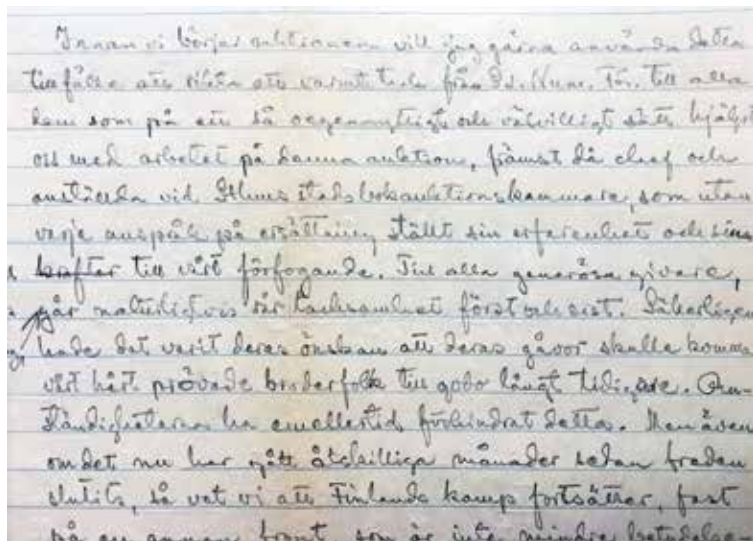 Innan vi börjar auktionen vill jag gärna använda detta
tillfälle att rikta ett varmt tack från Sv. Num. För. till alla
dem som på ett så oegennyttigt och välvilligt sätt hjälpt
oss med arbetet på denna auktion, främst då chef och
anställda vid Sthlms stads bokauktionskammare, som utan
varje anspråk på ersättning ställt sin erfarenhet och sina
krafter till vårt förfogande. Till alla generösa givare,
går naturligtvis vår tacksamhet först och sist. Säkerligen
hade det varit deras önskan att deras gåvor skulle komma
vårt hårt prövade broderfolk till godo långt tidigare. Om-
ständigheterna ha emellertid förhindrat detta. Men även
om det nu har gått åtskilliga månader sedan freden
slutits, så vet vi att Finlands kamp fortsätter, fast
på en annan front, som är inte mindre betydelse-